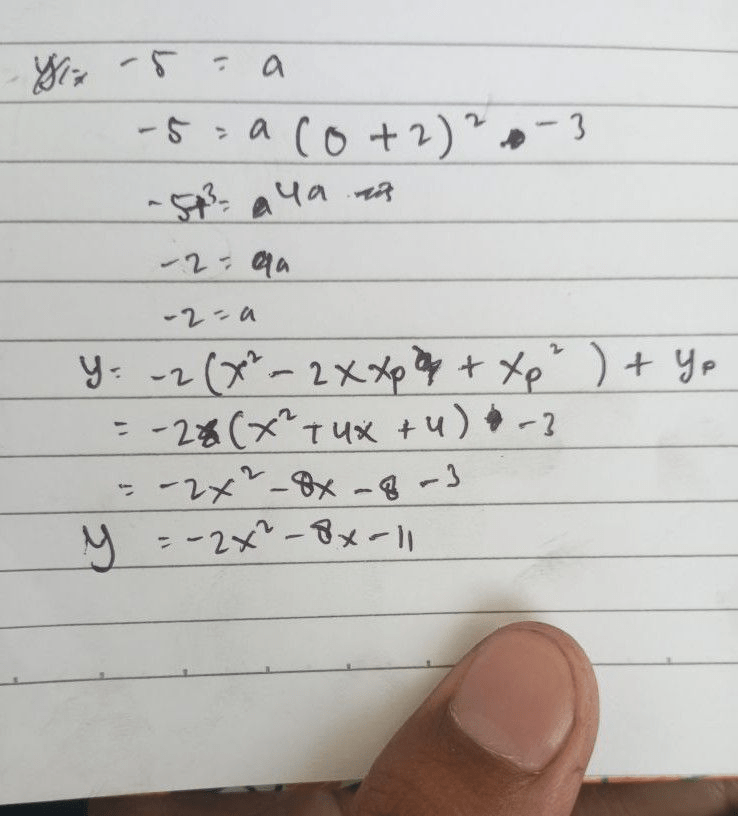 -5 = a
-5 = a (0 + 2)² - 3
-5+3 = 4a
-2 = 4a
-2 = a
y = -2 (x² - 2 x xp + xp²) + yp
= -2 (x² + 4x + 4) - 3
= -2x² - 8x - 8 - 3
y = -2x² - 8x - 11